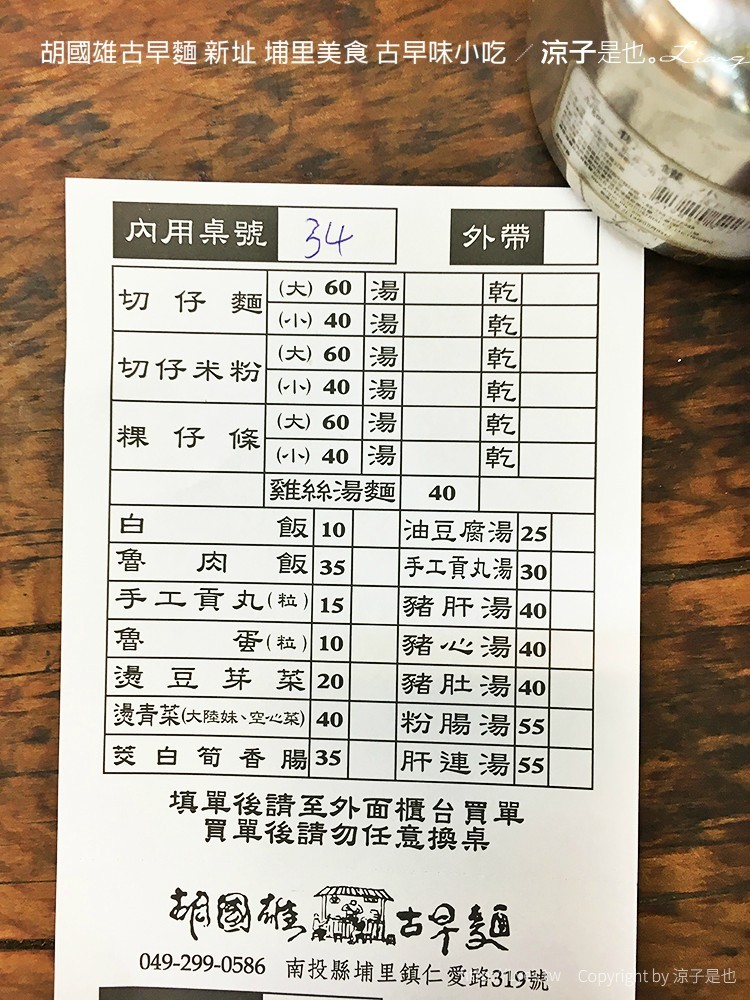 胡國雄古早麵 新址 埔里美食 古早味小吃 ／ 涼子是也。Liang
內用桌號 34 外帶
切仔麵 (大) 60 湯 乾
(小) 40 湯 乾
切仔米粉 (大) 60 湯 乾
(小) 40 湯 乾
粿仔條 (大) 60 湯 乾
(小) 40 湯 乾
雞絲湯麵 40
白飯 10 油豆腐湯 25
魯肉飯 35 手工貢丸湯 30
手工貢丸(粒) 15 豬肝湯 40
魯蛋(粒) 10 豬心湯 40
燙豆芽菜 20 豬肚湯 40
燙青菜(大陸妹、空心菜) 40 粉腸湯 55
茭白筍香腸 35 肝連湯 55
填單後請至外面櫃台買單
買單後請勿任意換桌
胡國雄古早麵
049-299-0586 南投縣埔里鎮仁愛路319號
Copyright by 涼子是也